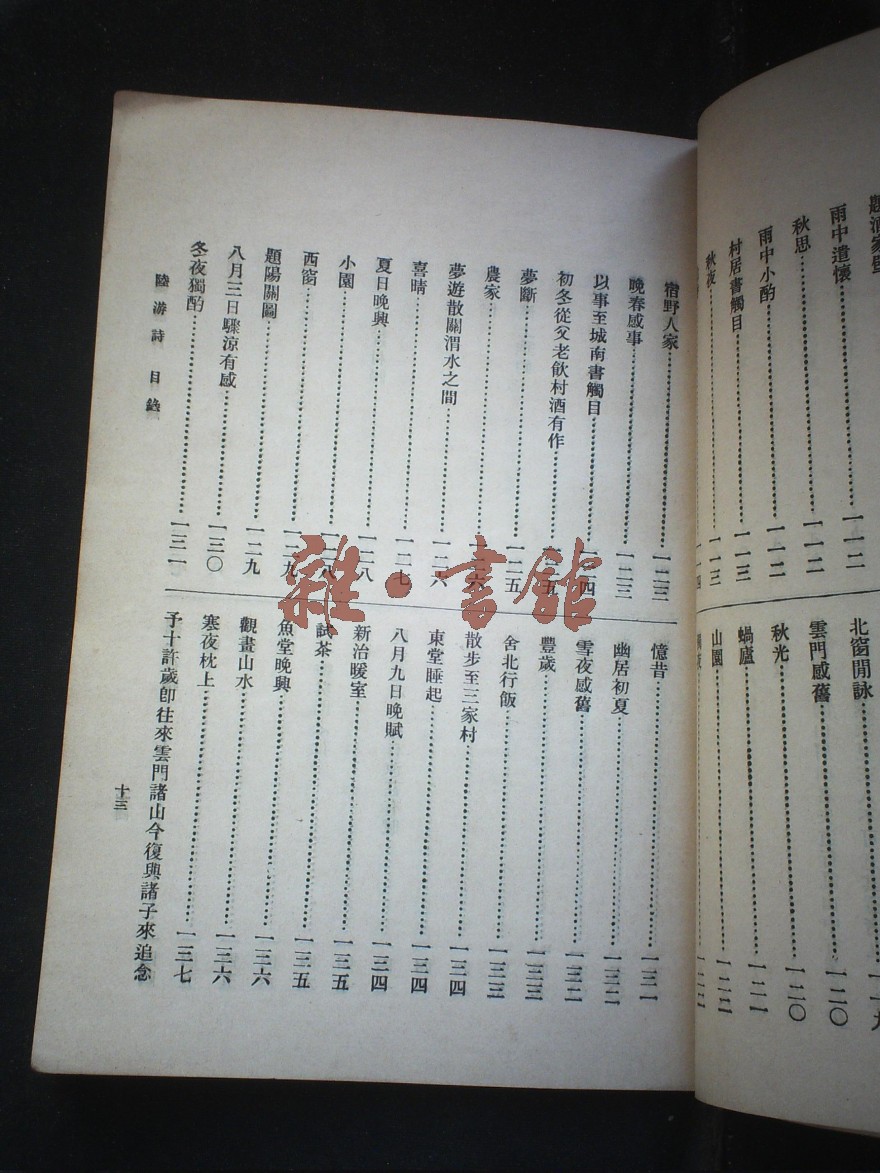 雨中遣懷
秋思……一一二
雨中小酌……一一二
村居書觸目……一一三
秋夜……一一三
北窗閒詠
雲門感舊……一二〇
秋光……一二〇
蝸廬……一二一
山園……一二二
宿野人家……一二三
晚春感事……一二三
以事至城南書觸目……一二四
初冬從父老飲村酒有作……一二五
夢斷……一二五
農家……一二六
夢遊散關渭水之間……一二六
喜晴……一二七
夏日晚興……一二八
小園……一二八
西窗……一二九
題陽關圖……一二九
八月三日驟涼有感……一三〇
冬夜獨酌……一三一
憶昔……一三一
幽居初夏……一三二
雪夜感舊……一三二
豐歲……一三三
舍北行飯……一三三
散步至三家村……一三四
東堂睡起……一三四
八月九日晚賦……一三四
新治暖室……一三五
試茶……一三五
魚堂晚興……一三六
觀畫山水……一三六
寒夜枕上……一三七
予十許歲卽往來雲門諸山今復與諸子來追念
陸游詩 目錄
十三
雜·書館